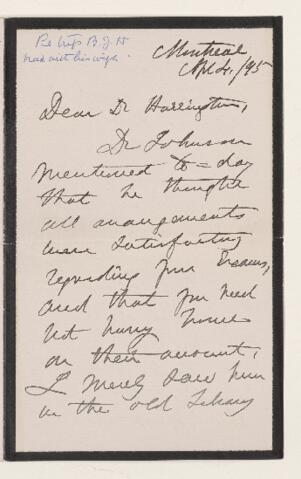 Montreal
Apl 4./95
Dear Dr Harrington,
Dr Johnson
mentioned to=day
that he thought
all arrangements
were satisfactory
regarding your Exams,
and that you need
not hurry home
on their account,
I merely saw him
in the old Library